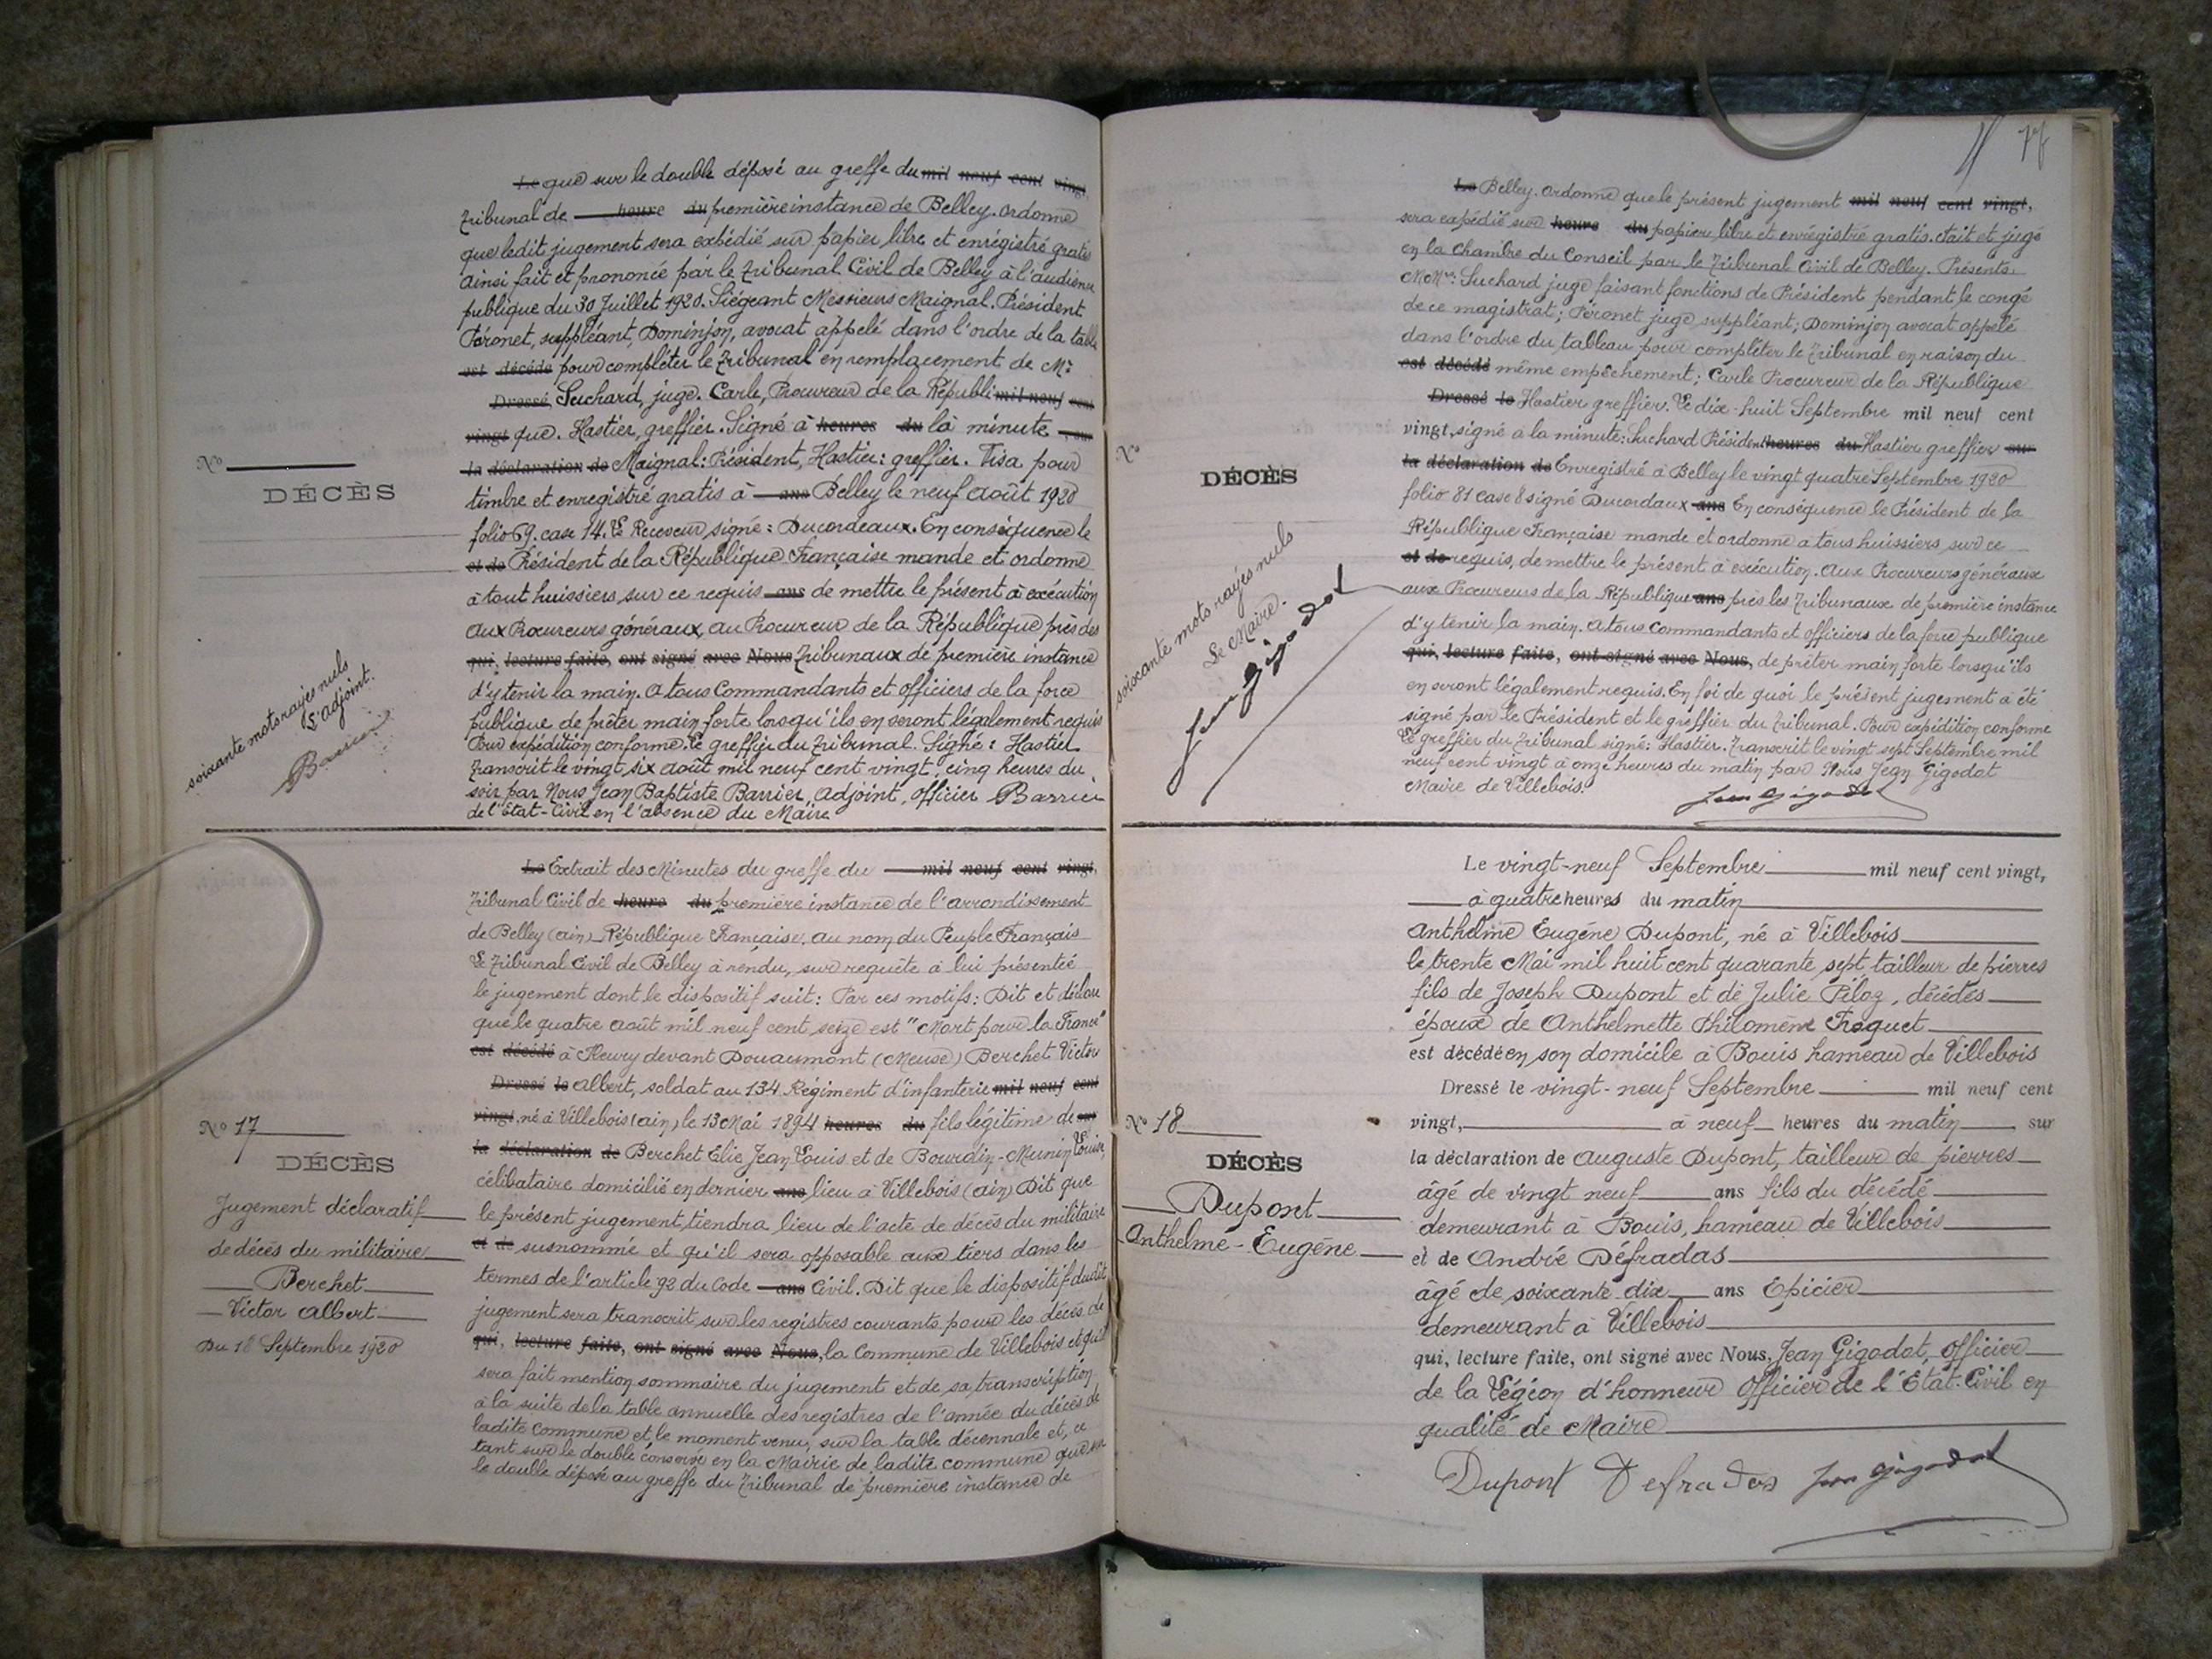 Le que sur le double déposé au greffe du mil neuf cent vingt
Tribunal de heure du première instance de Belley. Ordonne
que ledit jugement sera expédié sur papier libre et enrégistré gratis
Ainsi fait et prononcée par le Tribunal Civil de Belley à l'audience
publique du 30 Juillet 1920. Siégeant Messieurs Maignal. Président
Péronet, suppléant, Dominjon, avocat appelé dans l'ordre de la table
est décédé pour compléter le Tribunal en remplacement de Mr
Dressé Suchard, juge. Carle, Procureur de la Républi mil neuf cent
vingt que. Hastier, greffier. Signé à heures du la minute sur
N°
la déclaration de Maignal: Président, Hastier: greffier. Visa pour
DÉCÈS
timbre et enregistré gratis à ans Belley le neuf Août 1920
folio 69. case 14. Le Receveur signé: Ducordeaux. En conséquence le
et de Président de la République Française mande et ordonne
à tout huissiers sur ce requis ans de mettre le présent à exécution
aux Procureurs généraux, au Procureur de la République près des
qui, lecture faite, ont signé avec Nous Tribunaux de première instance
d'y tenir la main. A tous Commandants et officiers de la force
publique de prêter main forte lorsqu'ils en seront légalement requis
Pour expédition conforme. Le greffier du Tribunal. Signé: Hastier
Transcrit le vingt six Août mil neuf cent vingt, cinq heures du
soir par Nous Jean Baptiste Barrier, Adjoint, Officier Barrier
de l'Etat-Civil en l'absence du Maire
soixante mots rayés nuls
L'adjoint.
Barrier
Le Extrait des Minutes du greffe du mil neuf cent vingt,
Tribunal Civil de heure du première instance de l'arrondissement
de Belley (Ain) République Française. Au nom du Peuple Français
Le Tribunal Civil de Belley à rendu, sur requête à lui présentée
le jugement dont le dispositif suit: Par ces motifs: Dit et déclare
que le quatre Août mil neuf cent seize est "Mort pour la France"
est décédé à Fleury devant Douaumont (Meuse) Berchet Victor
Dressé le Albert, soldat au 134 Régiment d'infanterie mil neuf cent
vingt, né à Villebois (Ain) le 13 Mai 1894 heures du fils légitime de sur
N° 17
la déclaration de Berchet Elie Jean Louis et de Bourdin-Munin Louise
DÉCÈS
célibataire domicilié en dernier ans lieu à Villebois (Ain) Dit que
Jugement déclaratif
le présent jugement, tiendra lieu de l'acte de décès du militaire
de décès du militaire
et de susnommé et qu'il sera opposable aux tiers dans les
Berchet
termes de l'article 92 du Code ans Civil. Dit que le dispositif dudit
Victor Albert
jugement sera transcrit sur les registres courants pour les décès de
Du 18 Septembre 1920
qui, lecture faite, ont signé avec Nous, la Commune de Villebois et qu'il
sera fait mention sommaire du jugement et de sa transcription
à la suite de la table annuelle des registres de l'année du décès de
ladite Commune et, le moment venu, sur la table décennale et, ce
tant sur le double conservé en la Mairie de ladite commune que sur
le double déposé au greffe du Tribunal de première instance de
Le Belley. Ordonne que le présent jugement mil neuf cent vingt,
sera expédié sur heure du papier libre et enrégistré gratis. Fait et jugé
en la Chambre du Conseil par le Tribunal Civil de Belley. Présents.
MMrs: Suchard juge faisant fonctions de Président pendant le congé
de ce magistrat; Péronet juge suppléant; Dominjon avocat appelé
dans l'ordre du tableau pour compléter le Tribunal en raison du
est décédé même empêchement; Carle Procureur de la République
Dressé le Hastier greffier. Le dix-huit Septembre mil neuf cent
vingt, signé à la minute: Suchard Président heures du Hastier greffier sur
N°
la déclaration de Enregistré à Belley le vingt quatre Septembre 1920
DÉCÈS
folio 81 case 8 signé Ducordaux ans En conséquence le Président de la
République Française mande et ordonne à tous huissiers sur ce
et de requis, de mettre le présent à exécution. Aux Procureurs généraux
aux Procureurs de la République ans près les Tribunaux de première instance
d'y tenir la main. A tous Commandants et officiers de la force publique
qui, lecture faite, ont signé avec Nous, de prêter main forte lorsqu'ils
en seront légalement requis. En foi de quoi le présent jugement a été
signé par le Président et le greffier du Tribunal. Pour expédition conforme
Le greffier du Tribunal signé: Hastier. Transcrit le vingt sept Septembre mil
neuf cent vingt à onze heures du matin par Nous Jean Gigodot
Maire de Villebois.
Jean Gigodot
soixante mots rayés nuls
Le Maire.
Jean Gigodot
Le vingt-neuf Septembre mil neuf cent vingt,
à quatre heures du matin
Anthelme Eugène Dupont, né à Villebois
le trente Mai mil huit cent quarante sept tailleur de pierres
fils de Joseph Dupont et de Julie Péloz, décédés
époux de Anthelmette Philomène Froquet
est décédé en son domicile à Bouis hameau de Villebois
Dressé le vingt-neuf Septembre mil neuf cent
N° 18
vingt, à neuf heures du matin sur
DÉCÈS
la déclaration de Auguste Dupont, tailleur de pierres
Dupont
âgé de vingt neuf ans fils du décédé
Anthelme-Eugène
demeurant à Bouis, hameau de Villebois
et de André Défradas
âgé de soixante-dix ans Epicier
demeurant à Villebois
qui, lecture faite, ont signé avec Nous, Jean Gigodot, Officier
de la Légion d'honneur Officier de l'Etat-Civil en
qualité de Maire
Dupont Defradas Jean Gigodot